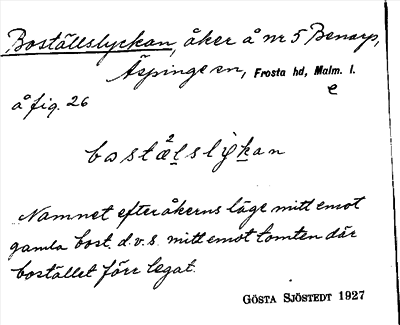 Boställslyckan, åker å nr 5 Benarp,
Äspinge sn, Frosta hd, Malm. l.
e
å fig. 26
Namnet efter åkerns läge mitt emot
gamla bost. d.v.s. mitt emot tomten där
bostället förr legat.
GÖSTA SJÖSTEDT 1927